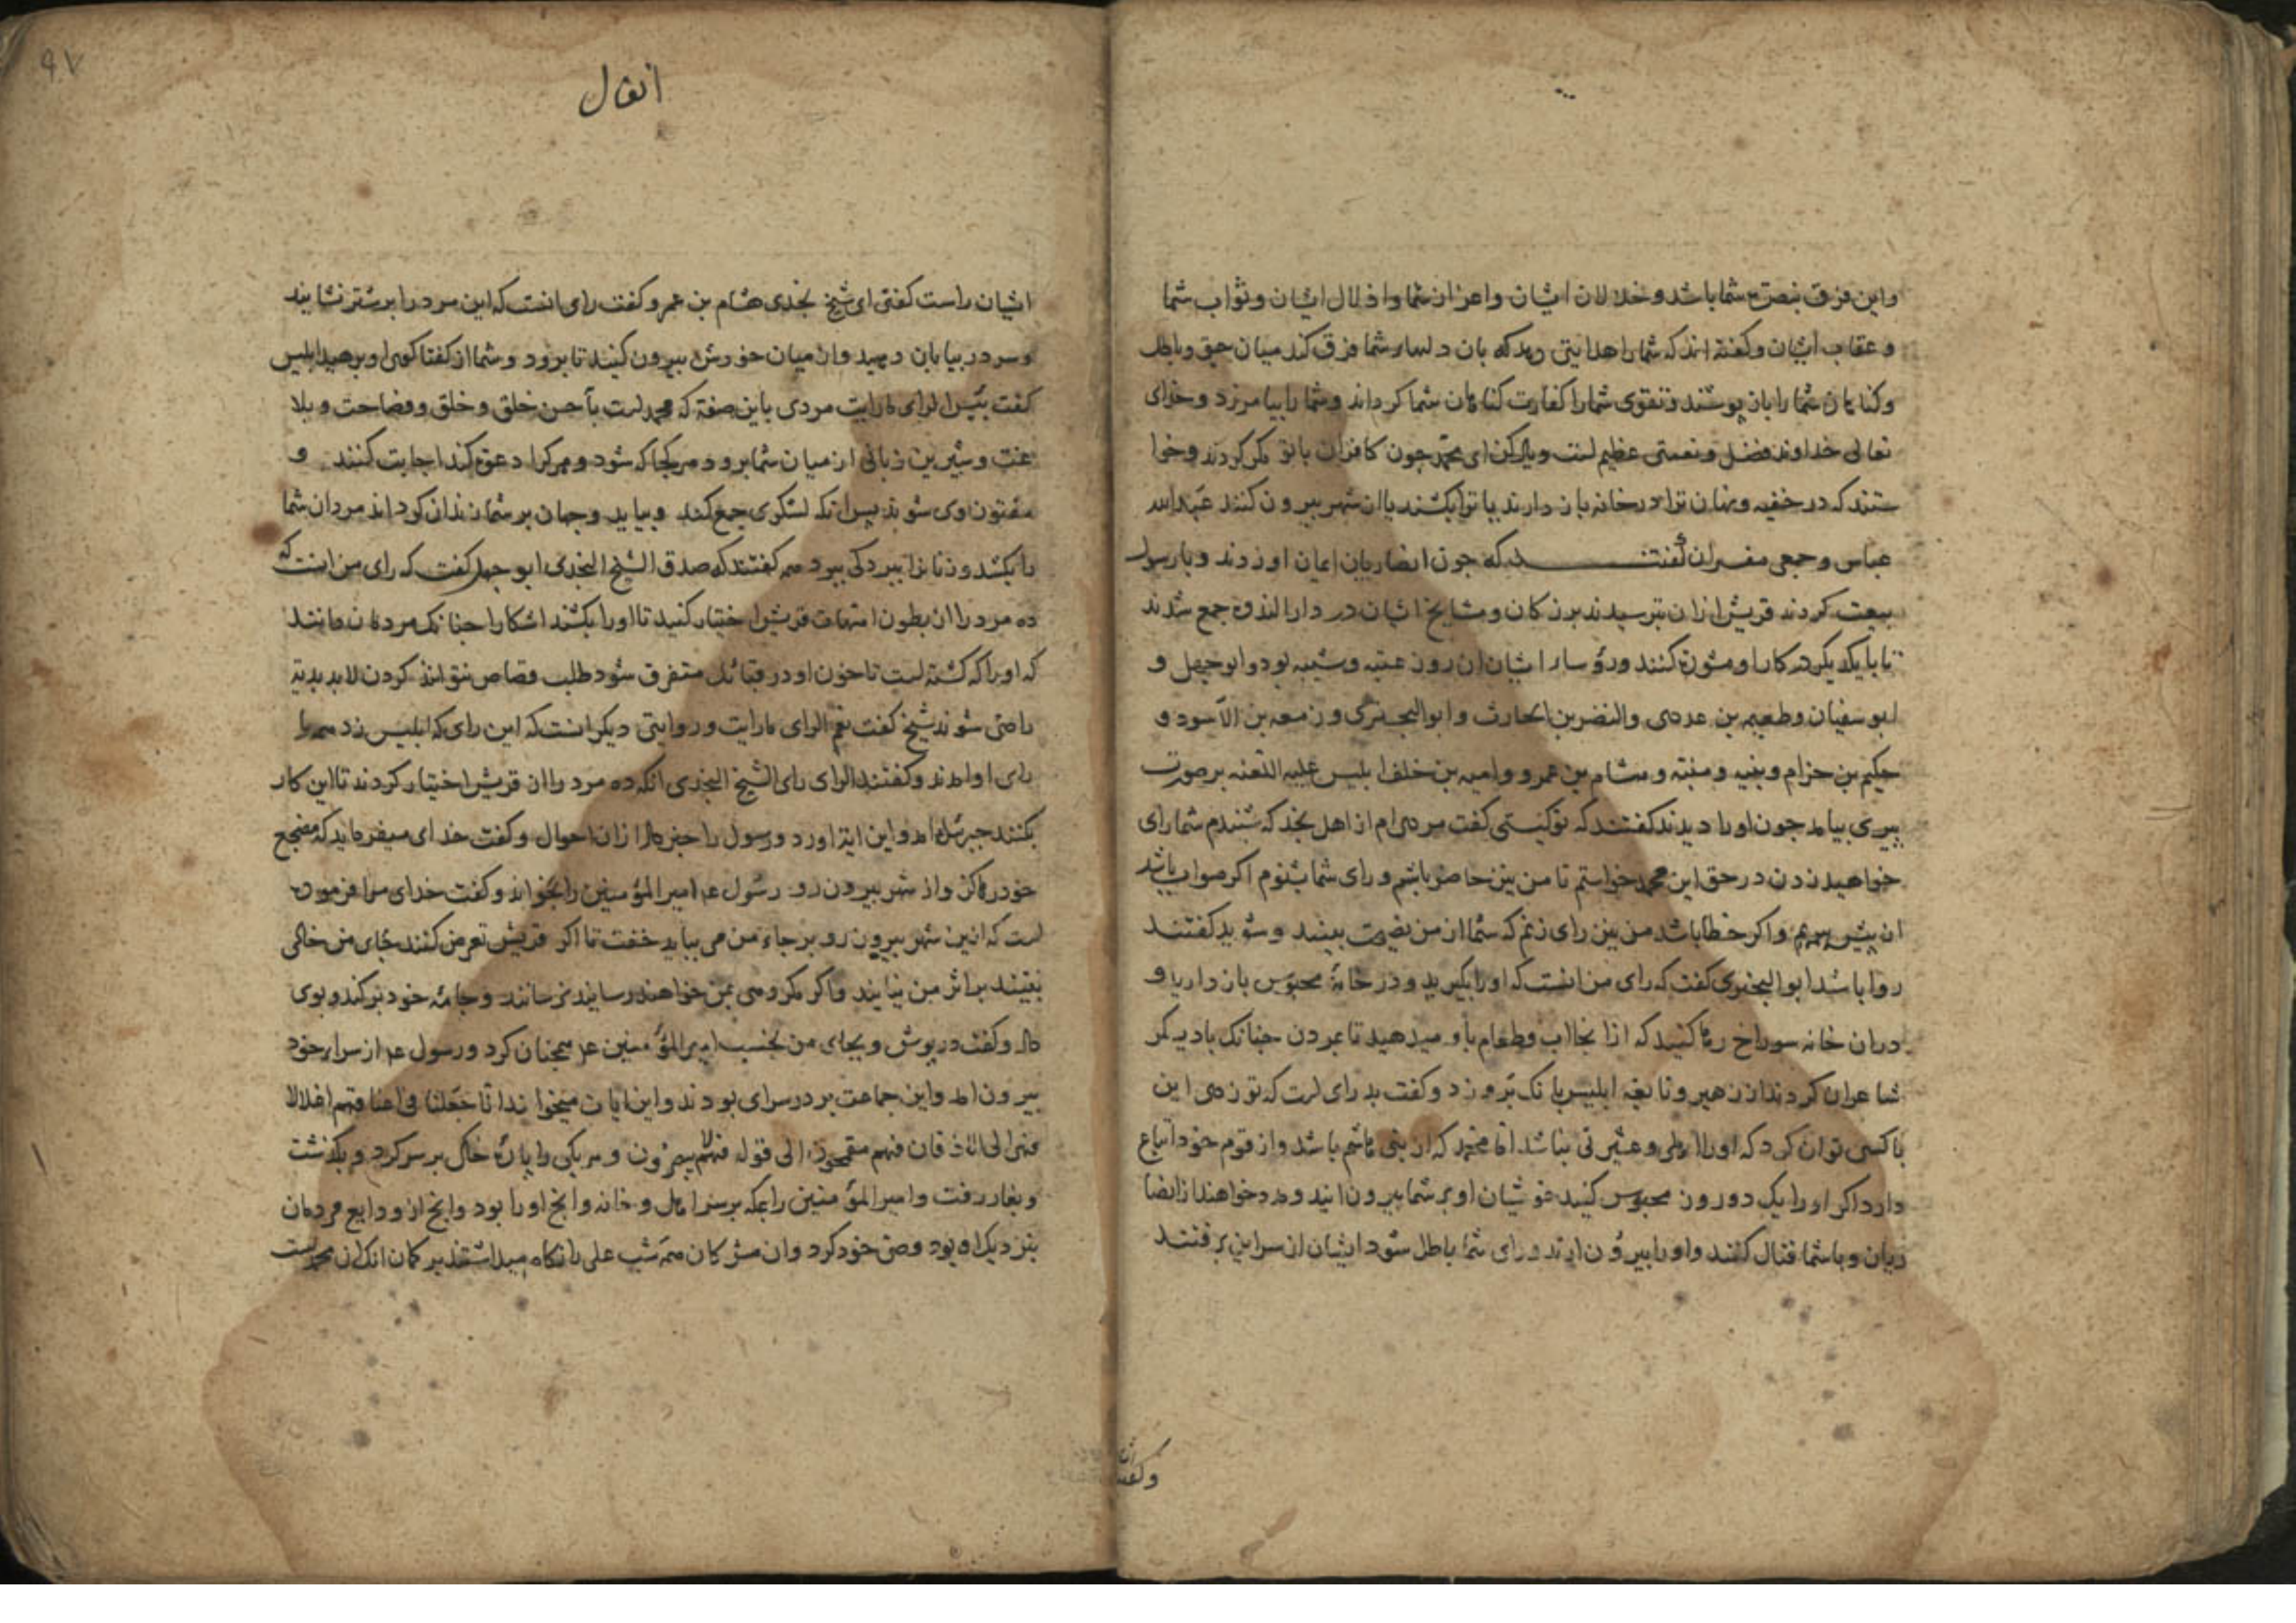 واین فرق بنصرة شما باشد و خذلان ایشان و اعزاز شما و اذلال ایشان و ثواب شما
و عقاب ایشان و کفته اند که شما را هدایتی دهد که بان در دلهاء شما فرق کند میان حق و باطل
و کناهان شما را بان بوشند و تقوی شما را کفارت کناهان شما کرداند و شما را بیامرزد و خدای
تعالی خداوند فضل و نعمتی عظیم است و یاد کن ای محمد جون کافران با تو مکر کردند و خوا
ستند که در خفیه و نهان ترا در خانه باز دارند یا ترا بکشند یا از شهر بیرون کنند عبدالله
عباس و جمعی مفسران کفتند که جون انصاریان ایمان اوردند و با رسول
بیعت کردند قریش ازان بترسیدند بزرکان و مشایخ ایشان در دار الندوة جمع شدند
تا با یکدیکر در کار او مشورة کنند و رؤساء ایشان ان روز عتبه و شیبه بود و ابوجهل و
ابوسفیان و طعیمه بن عدی و النضر بن الحارث و ابوالبختری و زمعه بن الاسود و
حکیم بن حزام و نبیه و منبه و هشام بن عمرو و امیه بن خلف ابلیس علیه اللعنه بر صورت
پیری بیامد جون او را دیدند کفتند که تو کیستی کفت مردی ام از اهل نجد که شنیدم شما رای
خواهید زدن در حق این محمد خواستم تا من نیز حاضر باشم و رای شما بشنوم اکر صواب باشد
از پیش ببرم و اکر خطا باشد من نیز رای زنم که شما از من نصیحت بینید و شوید کفتند
روا باشد ابوالبختری کفت که رای من انست که او را بکیرید و در خانهٔ محبوس باز دارید و
دران خانه سوراخ رها کنید که ازانجا اب و طعام باو میدهید تا بمردن جنانک با دیکر
شاعران کردند از زهیر و نابغه ابلیس بانک برو زد و کفت بد رای است که تو زدی این
با کسی توان کرد که او را رهطی و عشیرتی نباشد اما محمد که از بنی هاشم باشد و از قوم خود اتباع
دارد اکر او را یک دو روز محبوس کنید خویشان او بر شما بیرون ایند و مدد خواهند از انصا
ریان و با شما قتال کنند و او را بیرون ارند و رای شما باطل شود ایشان از سر این برفتند
وکفتند
انفال
ایشان راست کفتی ای شیخ نجدی هشام بن عمرو کفت رای انست که این مرد را بر شتر نشانید
و سر در بیابان دهید و از میان خودش بیرون کنید تا برود و شما از کفتاکوی او برهید ابلیس
کفت بئس الرای ما رایت مردی باین صفة که محمد است با حسن خلق و خلق و فصاحت و بلا
غت و شیرین زبانی از میان شما برود هر کجا که شود و هر کرا دعوة کند اجابت کنند و
مفتون وی شوند پس انکه لشکری جمع کند و بیاید و جهان بر شما زندان کرداند مردان شما
را بکشد و زنانرا ببردکی ببرد همه کفتند که صدق الشیخ النجدی ابوجهل کفت که رای من انست که
ده مرد را از بطون امهات قریش اختیار کنید تا او را بکشند اشکارا جنانک مردمان دانند
که او را که کشته است تا خون او در قبائل متفرق شود طلب قصاص نتوانند کردن لابد بدیة
راضی شوند شیخ کفت نعم الرای ما رایت و روایتی دیکر انست که این رای که ابلیس زد همه را
رای او امد و کفتند الرای رای الشیخ النجدی انکه ده مرد را از قریش اختیار کردند تا این کار
بکنند جبرئیل امد و این ایة اورد و رسول را خبر داد ازان احوال و کفت خدای میفرماید که مضجع
خود رها کن و از شهر بیرون رو رسول عم امیر المؤمنین را بخواند و کفت خدای مرا فرموده
است که ازین شهر بیرون رو بر جاء من می بباید خفت تا اکر قریش تعرض کنند جای من خالی
نبینند بر اثر من نیایند و اکر مکروهی بمن خواهند رسانند نرسانند و جامهٔ خود بر کند و بوی
داد و کفت در پوش و بجای من بخسب امیر المؤمنین عم همجنان کرد و رسول عم از سراء خود
بیرون امد و این جماعت بر در سرای بودند و این ایات میخواند انا جعلنا فی اعناقهم اغلالا
فهی الی الاذقان فهم مقمحون الی قوله فهم لا یبصرون و هر یکی را پارهٔ خاک بر سر کرد و بکذشت
و بغار رفت و امیر المؤمنین را بمکه بر سر اهل و خانه و انج او را بود و انج از ودایع مردمان
بنزدیک او بود وصی خود کرد و ان مشرکان همه شب علی را نکاه میداشتند بر کمان انک ان محمد است